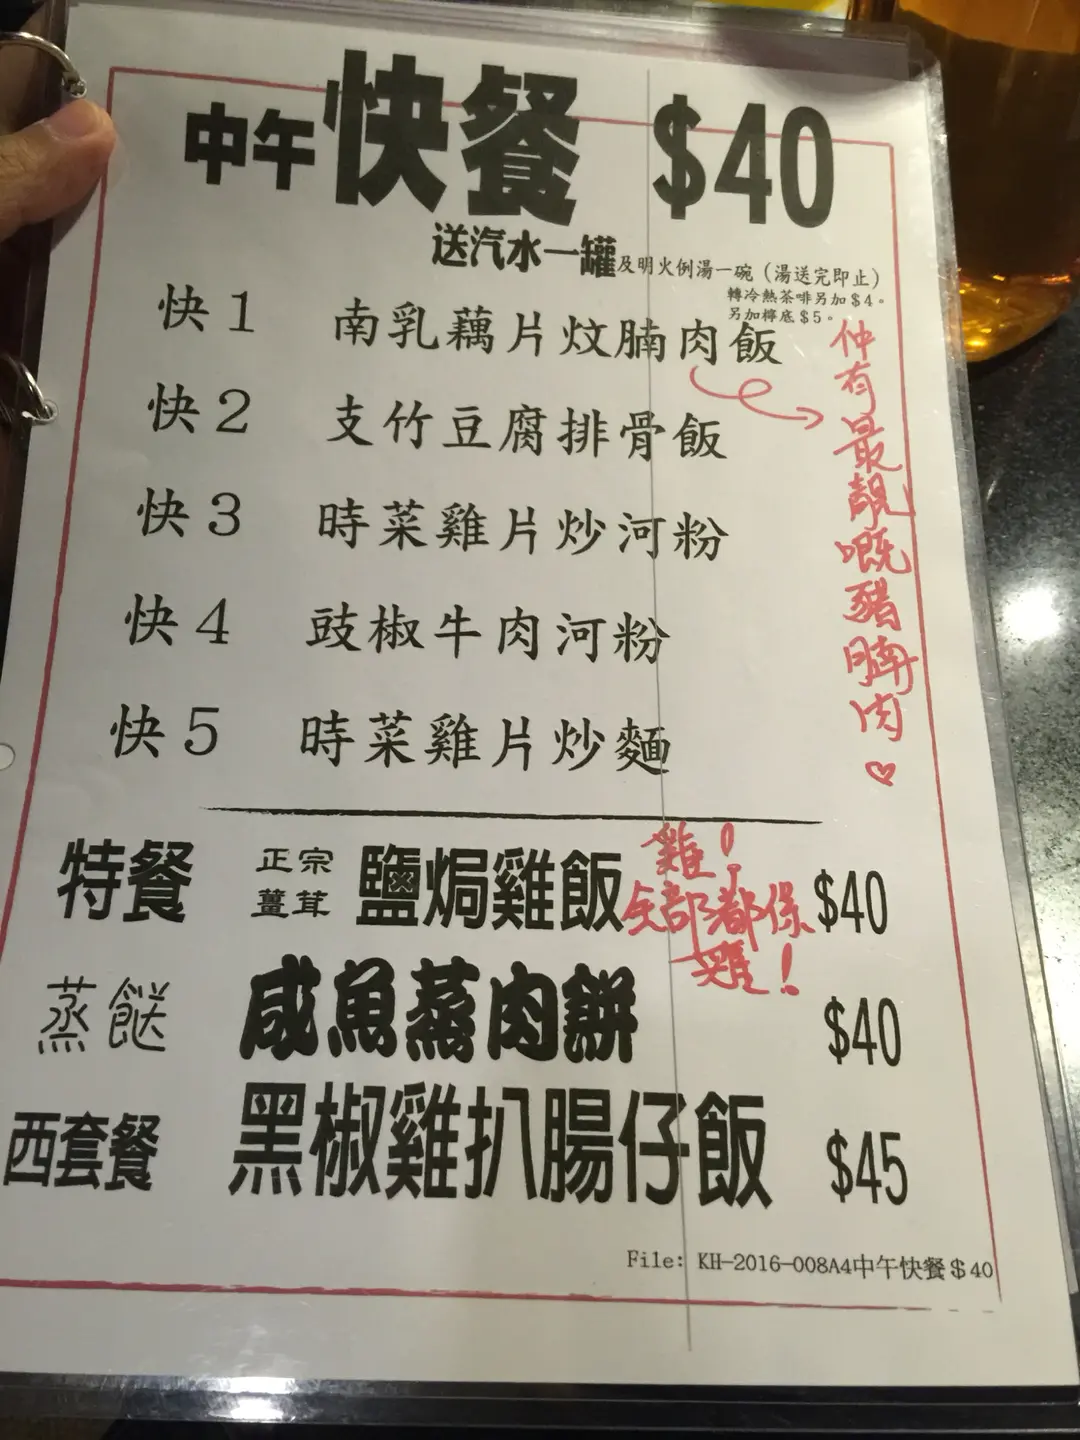 中午快餐 $40
送汽水一罐及明火例湯一碗（湯送完即止）
轉冷熱茶啡另加＄4。
另加檸底＄5。
快１ 南乳藕片炆腩肉飯
快２ 支竹豆腐排骨飯
快３ 時菜雞片炒河粉
快４ 豉椒牛肉河粉
快５ 時菜雞片炒麵
仲有最靚嘅豬腩肉♡
特餐 正宗薑茸 鹽焗雞飯 $40
雞！
全部都係
雞！
蒸餸 咸魚蒸肉餅 $40
西套餐 黑椒雞扒腸仔飯 $45
File: KH-2016-008A4中午快餐＄40